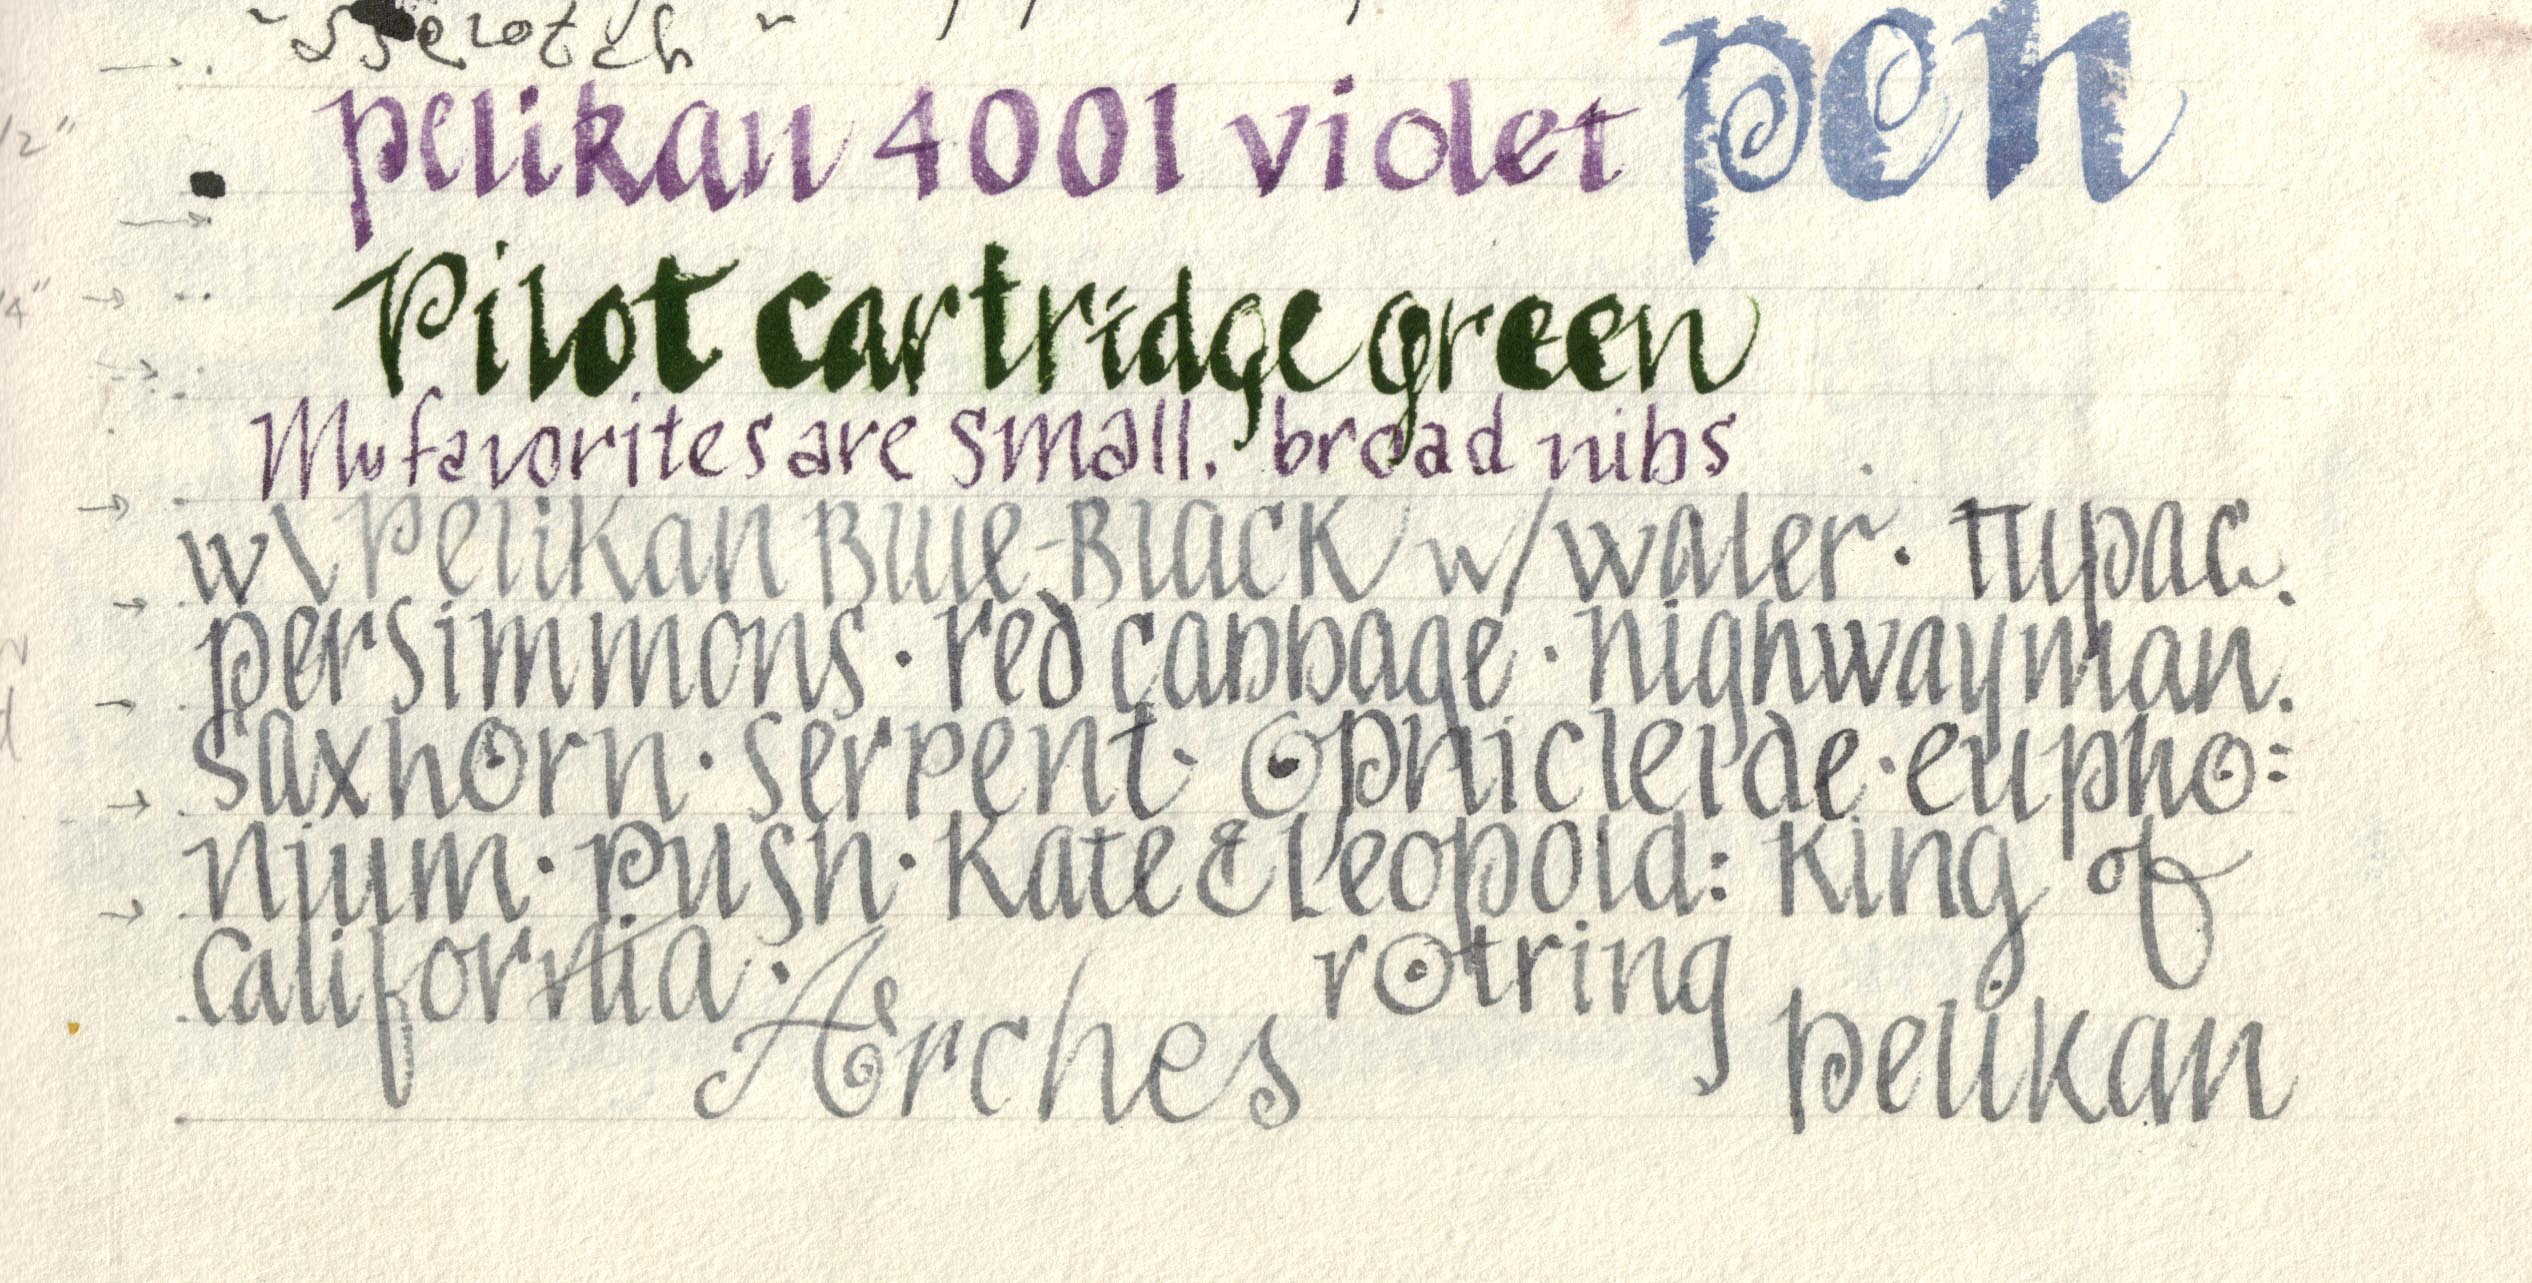 pelikan 4001 violet pen
Pilot cartridge green
My favorites are small, broad nibs
w\ Pelikan Blue-Black w/water · Tupac.
persimmons · red cabbage · highwayman.
saxhorn · serpent · ophicleide · eupho=
nium · push · Kate & Leopold: King of
california · Arches rotring
pelikan